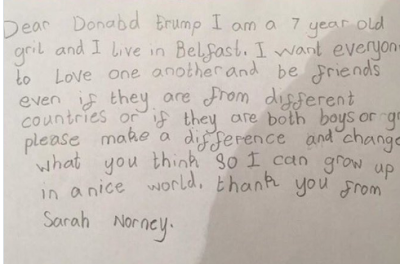 Dear Donabd trump I am a 7 year old
gril and I live in Belfast. I want everyon
to Love one another and be friends
even if they are from different
countries or if they are both boys or g
please make a difference and chang
what you think so I can grow up
in a nice world. thank you from
Sarah Norney.